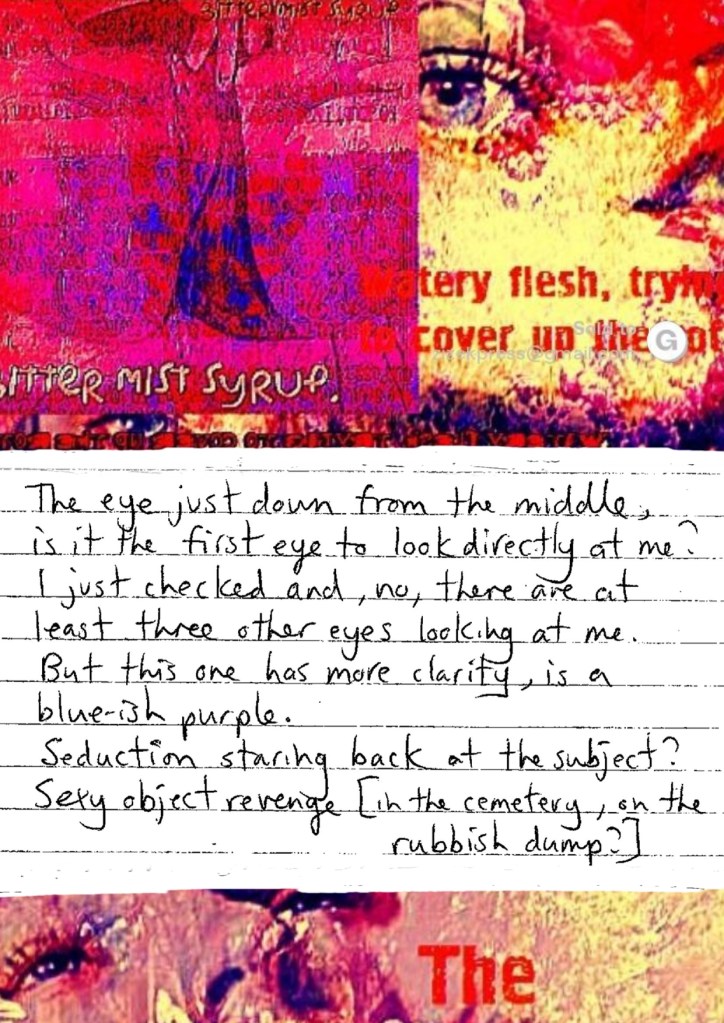 BITTER MIST SYRUP
Watery flesh, trying
to cover up the
BITTER MIST SYRUP.
The eye just down from the middle,
is it the first eye to look directly at me?
I just checked and, no, there are at
least three other eyes looking at me.
But this one has more clarity, is a
blue-ish purple.
Seduction staring back at the subject?
Sexy object revenge [in the cemetery, on the
rubbish dump?]
The